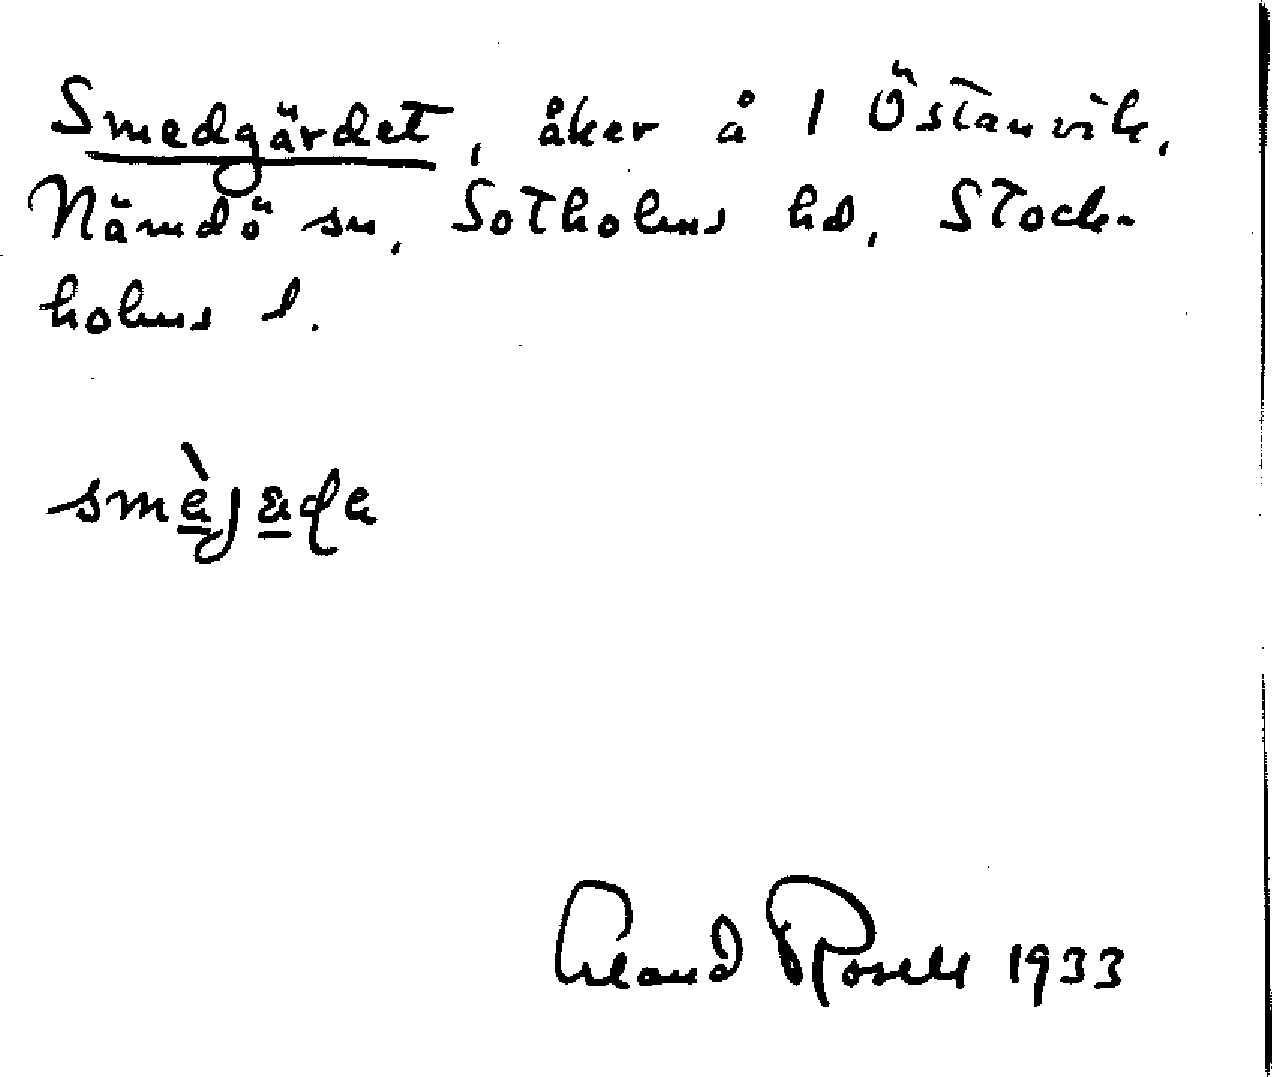 Smedgärdet, åker å 1 Östanvik,
Nämdö sn, Sotholms hd, Stock-
holms l.
smèjäda
Erland Rosell 1933